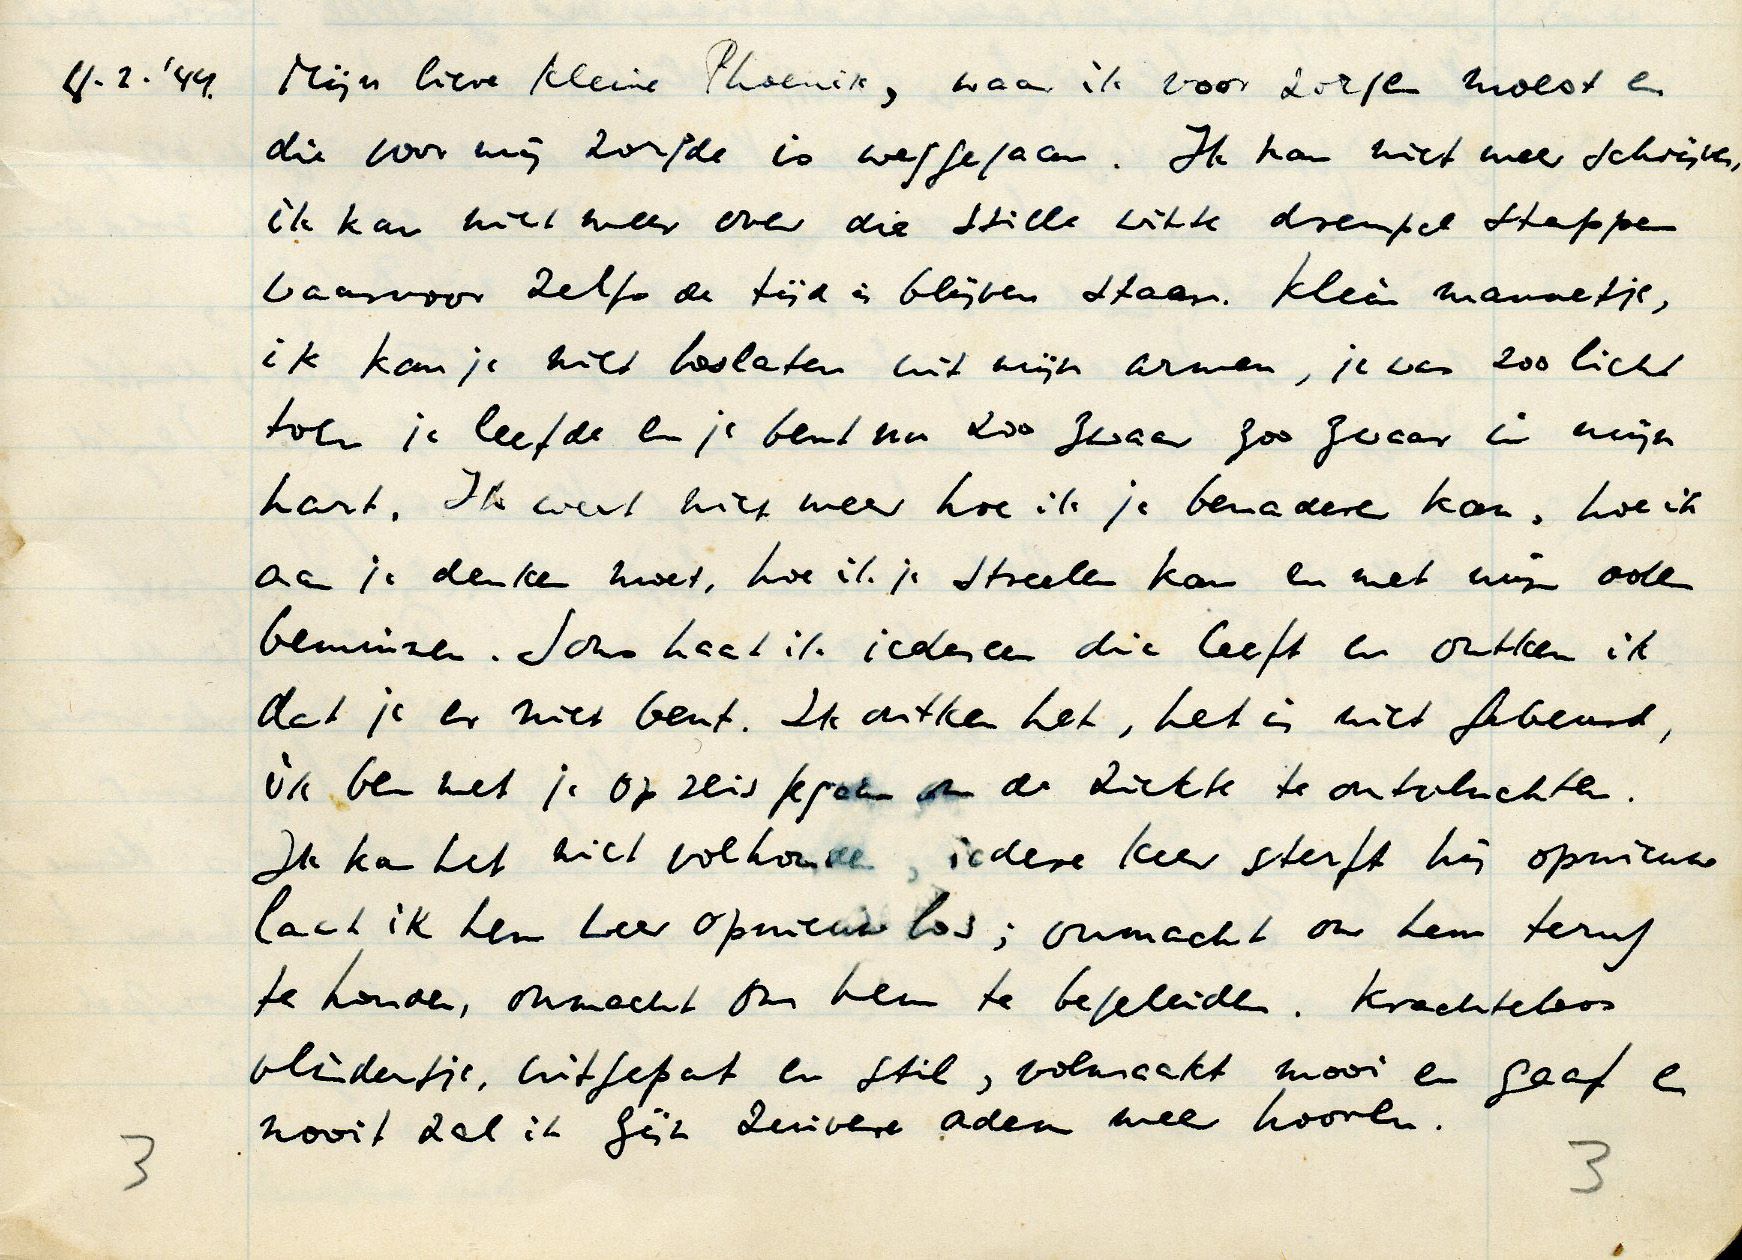 11.2.'44. Mijn lieve kleine Phoenix, waar ik voor zorgen moest en
die voor mij zorgde is weggegaan. Ik kan niet meer schrijven,
ik kan niet meer over die stille witte drempel stappen
waarvoor zelfs de tijd is blijven staan. Klein mannetje,
ik kan je niet loslaten uit mijn armen, je was zoo licht
toen je leefde en je bent nu zoo zwaar zoo zwaar in mijn
hart. Ik weet niet meer hoe ik je benaderen kan, hoe ik
aan je denken moet, hoe ik je streelen kan en met mijn oolen
beminnen. Soms haat ik iedereen die leeft en ontken ik
dat je er niet bent. Ik ontken het, het is niet gebeurd,
ik ben met je op reis gegaan om de ziekte te ontvluchten.
Ik kan het niet volhouden, iedere keer sterft hij opnieuw
laat ik hem weer opnieuw los; onmacht om hem terug
te houden, onmacht om hem te begeleiden. Krachteloos
vlindertje, uitgeput en stil, volmaakt mooi en gaaf en
nooit zal ik zijn zuivere adem meer hooren.
3 3